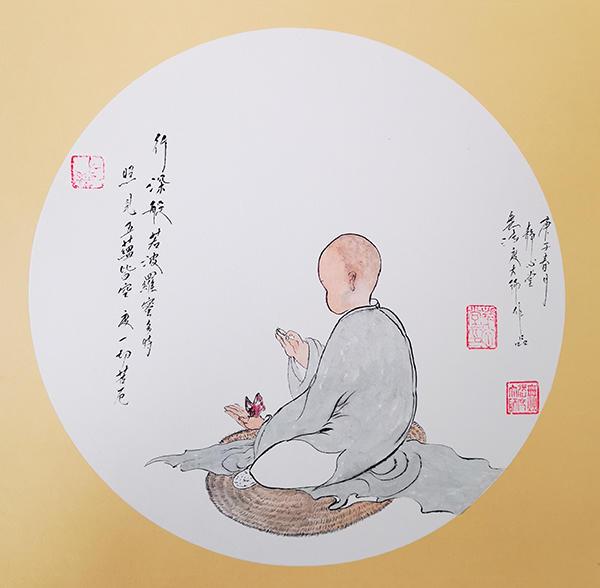 行深般若波羅蜜多時
照見五蘊皆空度一切苦厄
庚子春月
靜心堂
度大師作品